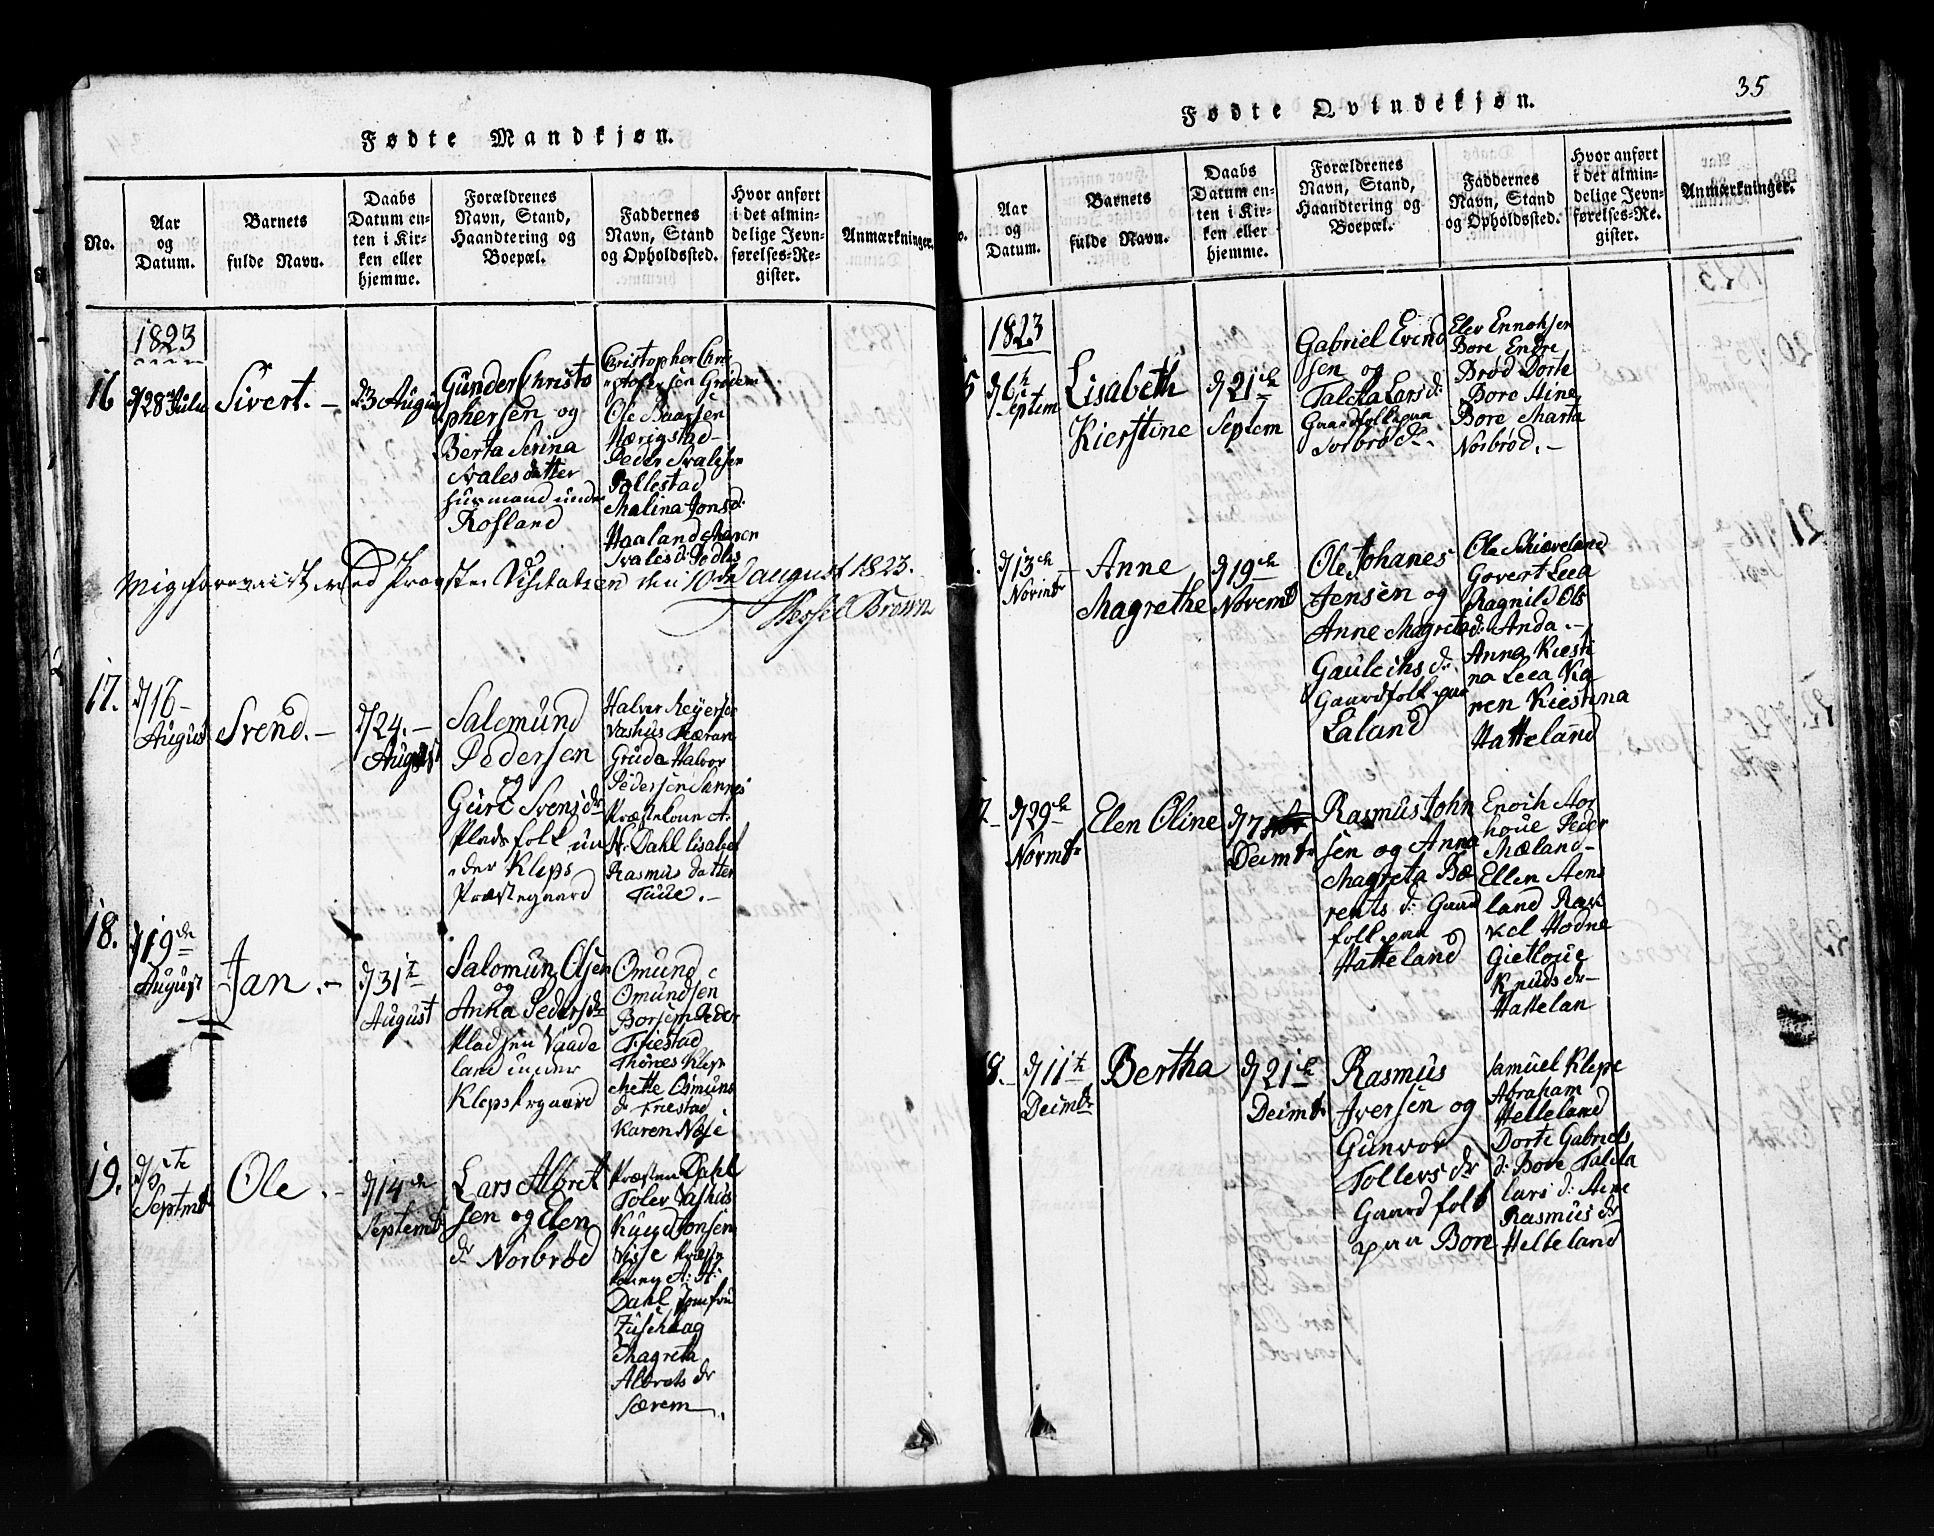 Fødte Mandkjøn.
No.
Aar
og
Datum.
Barnets
fulde Navn.
Daabs
Datum en-
ten i Kir-
ken eller
hjemme.
Forældrenes
Navn, Stand,
Haandtering og
Boepæl.
Faddernes
Navn, Stand
og Opholdssted.
Hvor anført
i det almin-
delige Jevn-
førelses-Re-
gister.
Anmærkninger.
1823
16
d/28 Julii
Sivert. –
23 August
Gunder Christo
phersen og
Berta Serina
Svales datter
husmand under
Rosland
Christopher Chri
stofersen Grødem
Ole Baarsen
Hærigstad
Peder Svalesen
Pollestad
Malina Jonsd:
Haaland Maren
Svales d:
med Provste Visitatsen den 10de august 1823.
Brown
17.
d/16 –
August
Svend. –
d/24. –
August
Salomund
Pedersen
og
Guri Svensdr
Pladsfolk un
der Kleps
Præstegaard
Halvor Reyersen
Vashus
Gruda Halvor
Pedersen
Præstekone A.
H. Dahl Lisabet
Rasmus datter
Tuue. –
18.
d/19de
August
Jan. –
d/31te
August
Salomun Olsen
og
Anna Pedersdr
Pladsen Vaade
land under
Kleps Prgaard
Omund
Omundsen
Borsem Peder
Friestad
Thönes Klep
Mette Osmuns
dr Friestad
Karen Næse
19.
d/6te
Septmbr
Ole. –
d/14de
Septembr
Lars Albret
sen og Elen
dr Norbrød
Præsten Dahl
Tolev Vashus
Knud Jonsen
Præste
koney A: H:
Dahl Jomfru
Magreta
Albrets dr
Særem
35
Fødte Qvindekjøn.
Aar
og
Datum.
Barnets
fulde Navn.
Daabs
Datum en-
ten i Kir-
ken eller
hjemme.
Forældrenes
Navn, Stand,
Haandtering og
Boepæl.
Faddernes
Navn, Stand
og Opholdssted.
Hvor anført
i det almin-
delige Jevn-
førelses-Re-
gister.
Anmærkninger.
1823
5
d/6te
Septem
Lisabeth
Kierstine
d/21de
Septem
Gabriel Evind
sen og
Taleta Larsd:
Gaardfolk paa
Sorbrød
Elev Ennoksen
Bore Endre
Brød Dorte
Bore Aine
Bore Marta
Norbrød. –
d/13de
Novmbr
Anne
Magrethe
d/19de
Novembr
Ole Johanes
Jensen og
Anne Magreta
Gauleihs dr
Gaardfolk paa
Laland
Ole Skiæveland
Govert Leea
Ragnild Ols
d: Anda. –
Anna Kiesti
na Leea Ka
ren Kiestina
Hatteland
7 –
d/29de
Novmbr
Elen Oline
d/7
Desmbr
Rasmus John
sen og Anna
Magreta Bæ
rents d: Gaard
folk paa
Hatteland
Enoch Aor
houe Peder
Mæland –
Ellen Aens
land Ras
kel Hodne
Gietloue
Knuds dr –
Hattelan
8. –
d/11te
Desmbr
Bertha
d/21de
Desmbr
Rasmus
Iversen og
Gunvor
Tollevs dr
Gaardfolk
paa Bore
Samuel Klepe
Abraham
Helleland
Dorte Gabriels
d: Bore Taleta
Lars d: Aene
Rasmus dr
Helleland